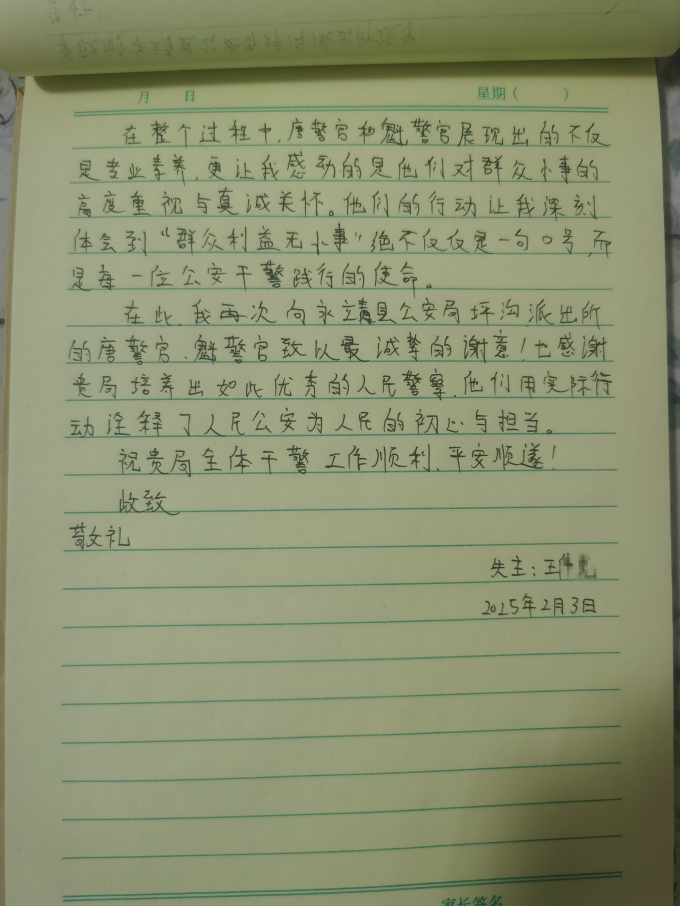 月 日 星期( )
在整个过程中,唐警官和魏警官展现出的不仅
是专业素养,更让我感动的是他们对群众小事的
高度重视与真诚关怀。他们的行动让我深刻
体会到“群众利益无小事”绝不仅仅是一句口号,而
是每一位公安干警践行的使命。
在此,我再次向永靖县公安局坪沟派出所
的唐警官、魏警官致以最诚挚的谢意!也感谢
贵局培养出如此优秀的人民警察,他们用实际行
动诠释了人民公安为人民的初心与担当。
祝贵局全体干警工作顺利、平安顺遂!
此致
敬礼
失主:王
2025年2月3日
家长签名